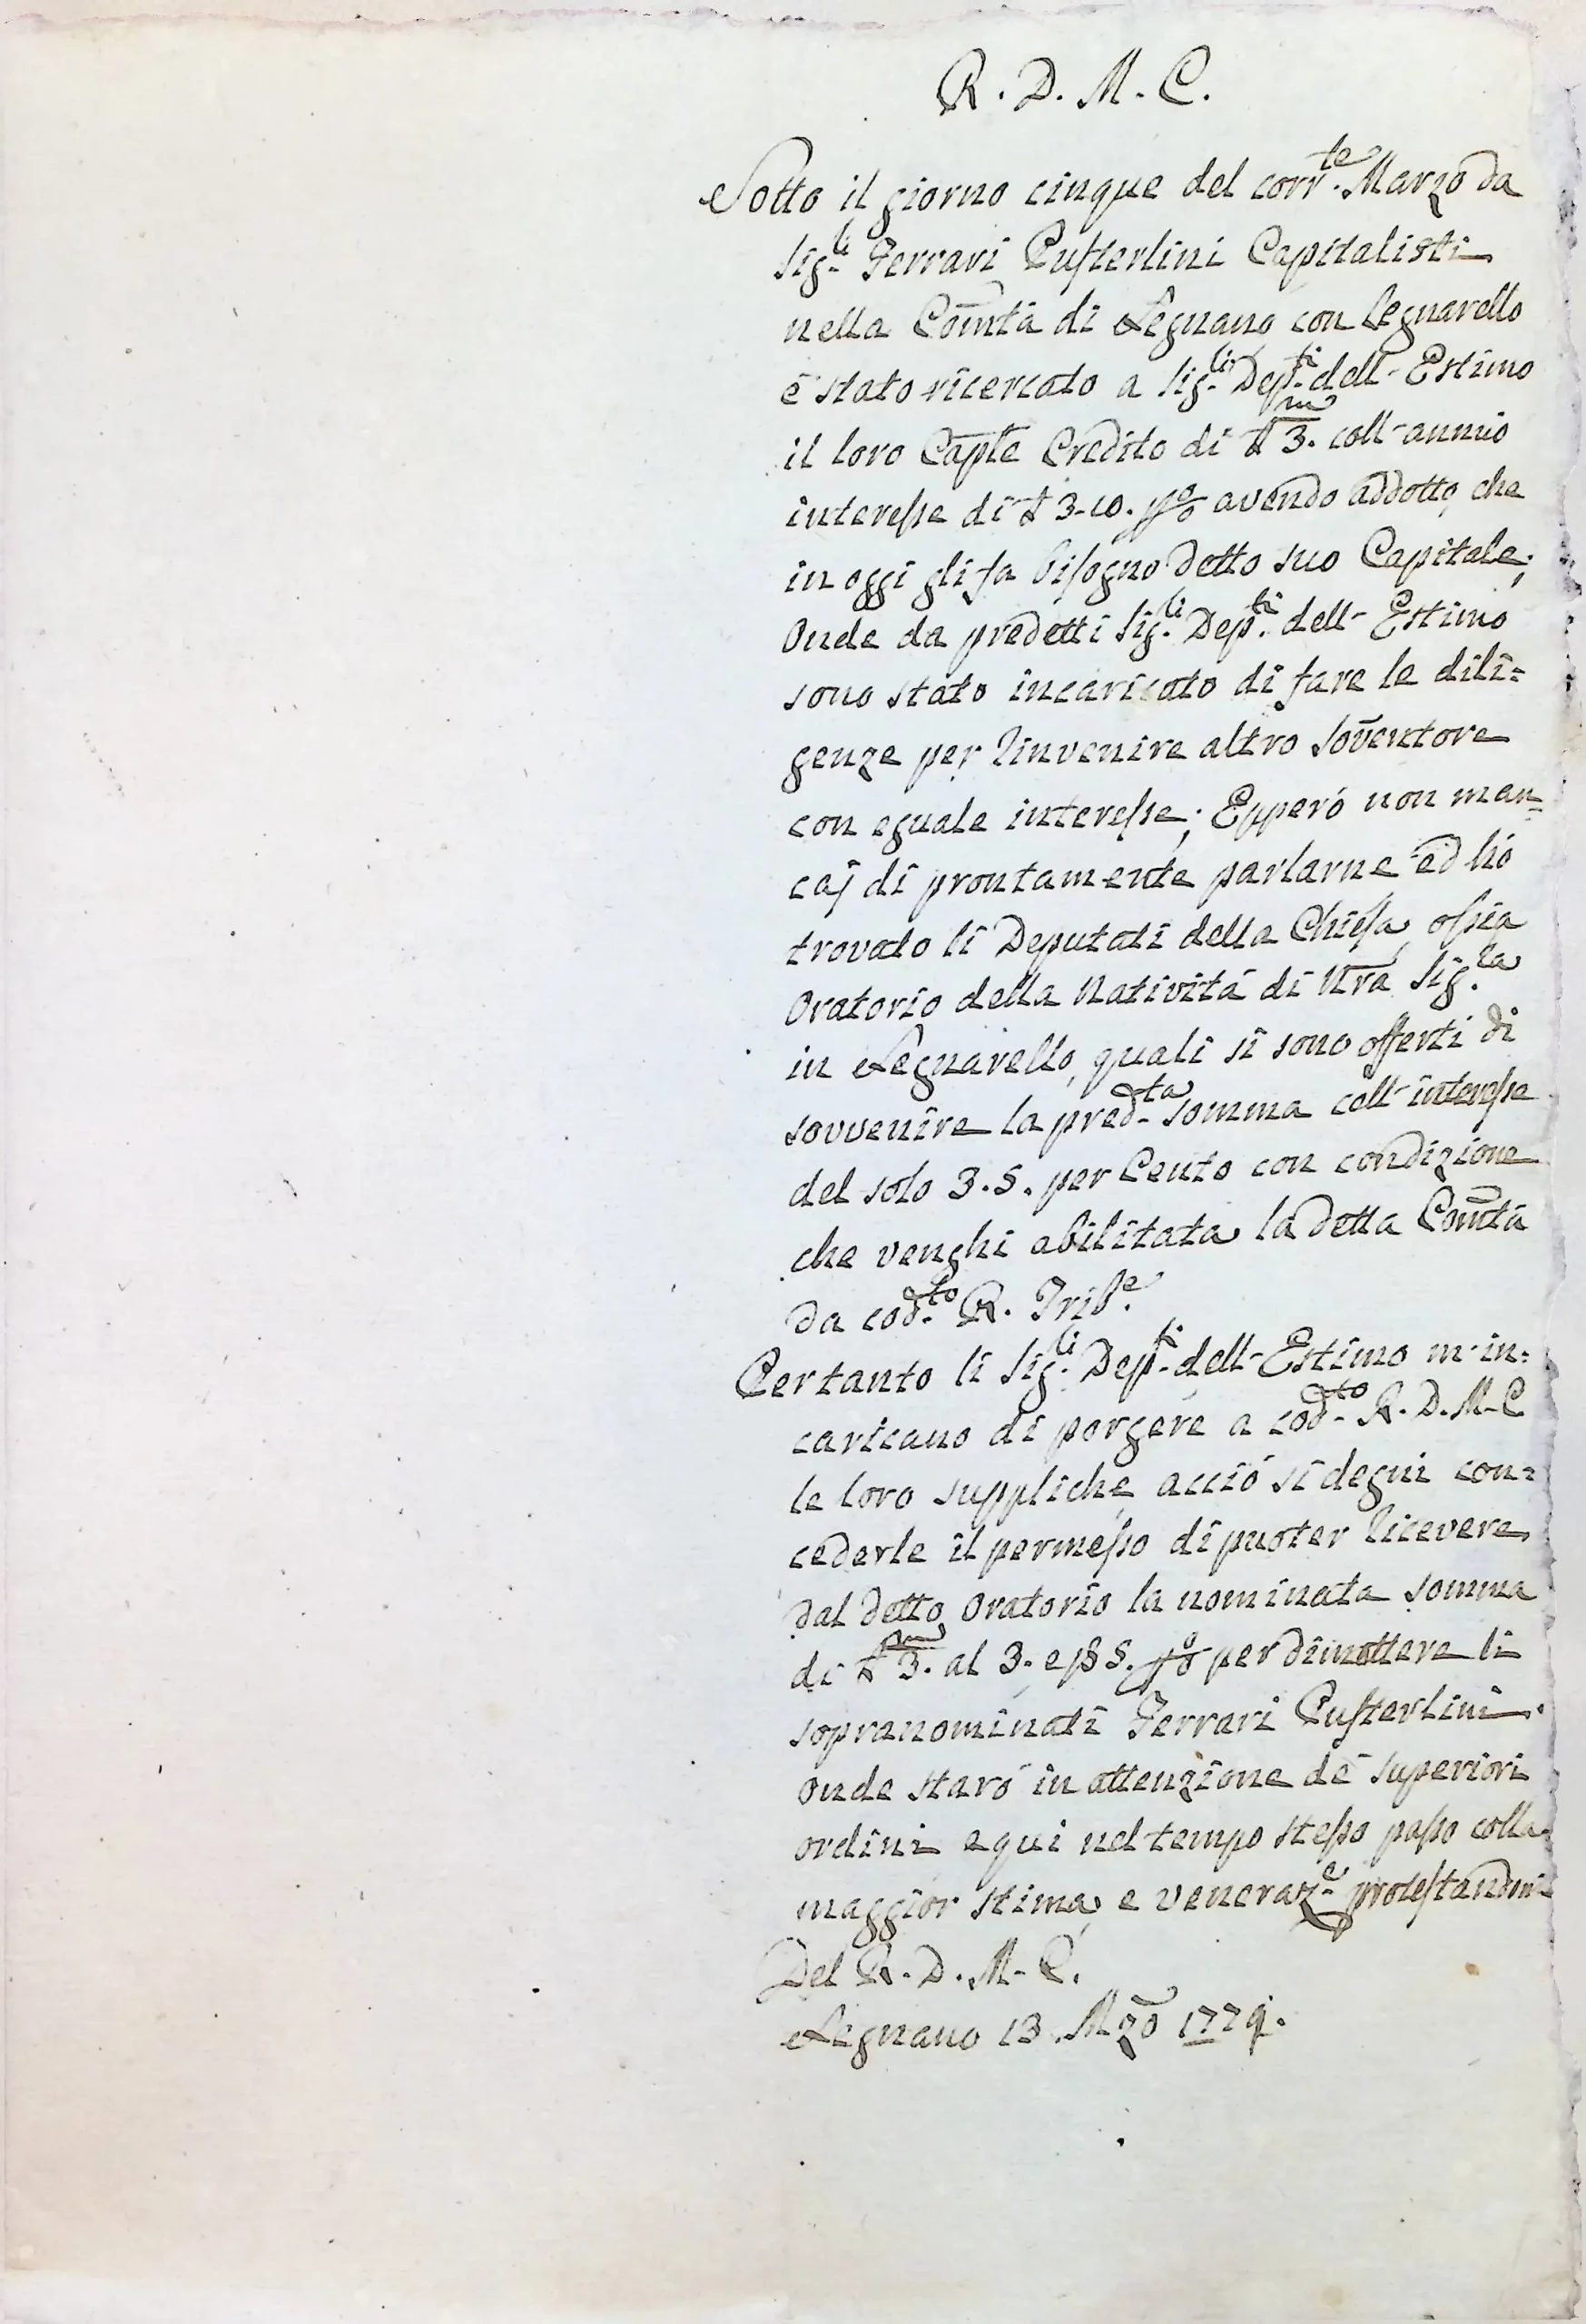 R. D. M. C.
Sotto il giorno cinque del corr.te Marzo da
Sig.li Ferrari Pusterlini Capitalisti
nella Com̄tà di Legnano con Legnarello
è stato ricercato a Sig.li Dep.ti dell' Estimo
il loro Cap̄le Credito di £ 3.m coll' annuo
interesse di £ 3-10. p% avendo addotto che
in oggi gli fa bisogno detto suo Capitale;
Onde da predetti Sig.li Dep.ti dell' Estimo
sono stato incaricato di fare le dili=
genze per rinvenire altro Sov̄entore
con eguale interesse; Epperò non man=
caj di prontamente parlarne ed hò
trovato li Deputati della Chiesa, ossia
Oratorio della Natività di Nr̄a Sig.ra
in Legnarello, quali si sono offerti di
sovvenire la pred.ta somma coll' interesse
del solo 3.5. per Cento con condizione
che venghi abilitata la detta Com̄tà
da cod.to R. Trib.e
Pertanto li Sig.li Dep.ti dell' Estimo m' in=
caricano di porgere a cod.to R. D. M. C
le loro suppliche acciò si degni con=
cederle il permesso di puoter ricevere
dal detto Oratorio la nominata somma
di £ 3.m al 3. e ß 5. p% per dimettere li
sopranominati Ferrari Pusterlini.
Onde starò in attenzione de' superiori
ordini e qui nel tempo stesso passo colla
maggior stima, e veneraz.e protestandomi
Del R. D. M. C.
Legnano 13 Mzō 1779.